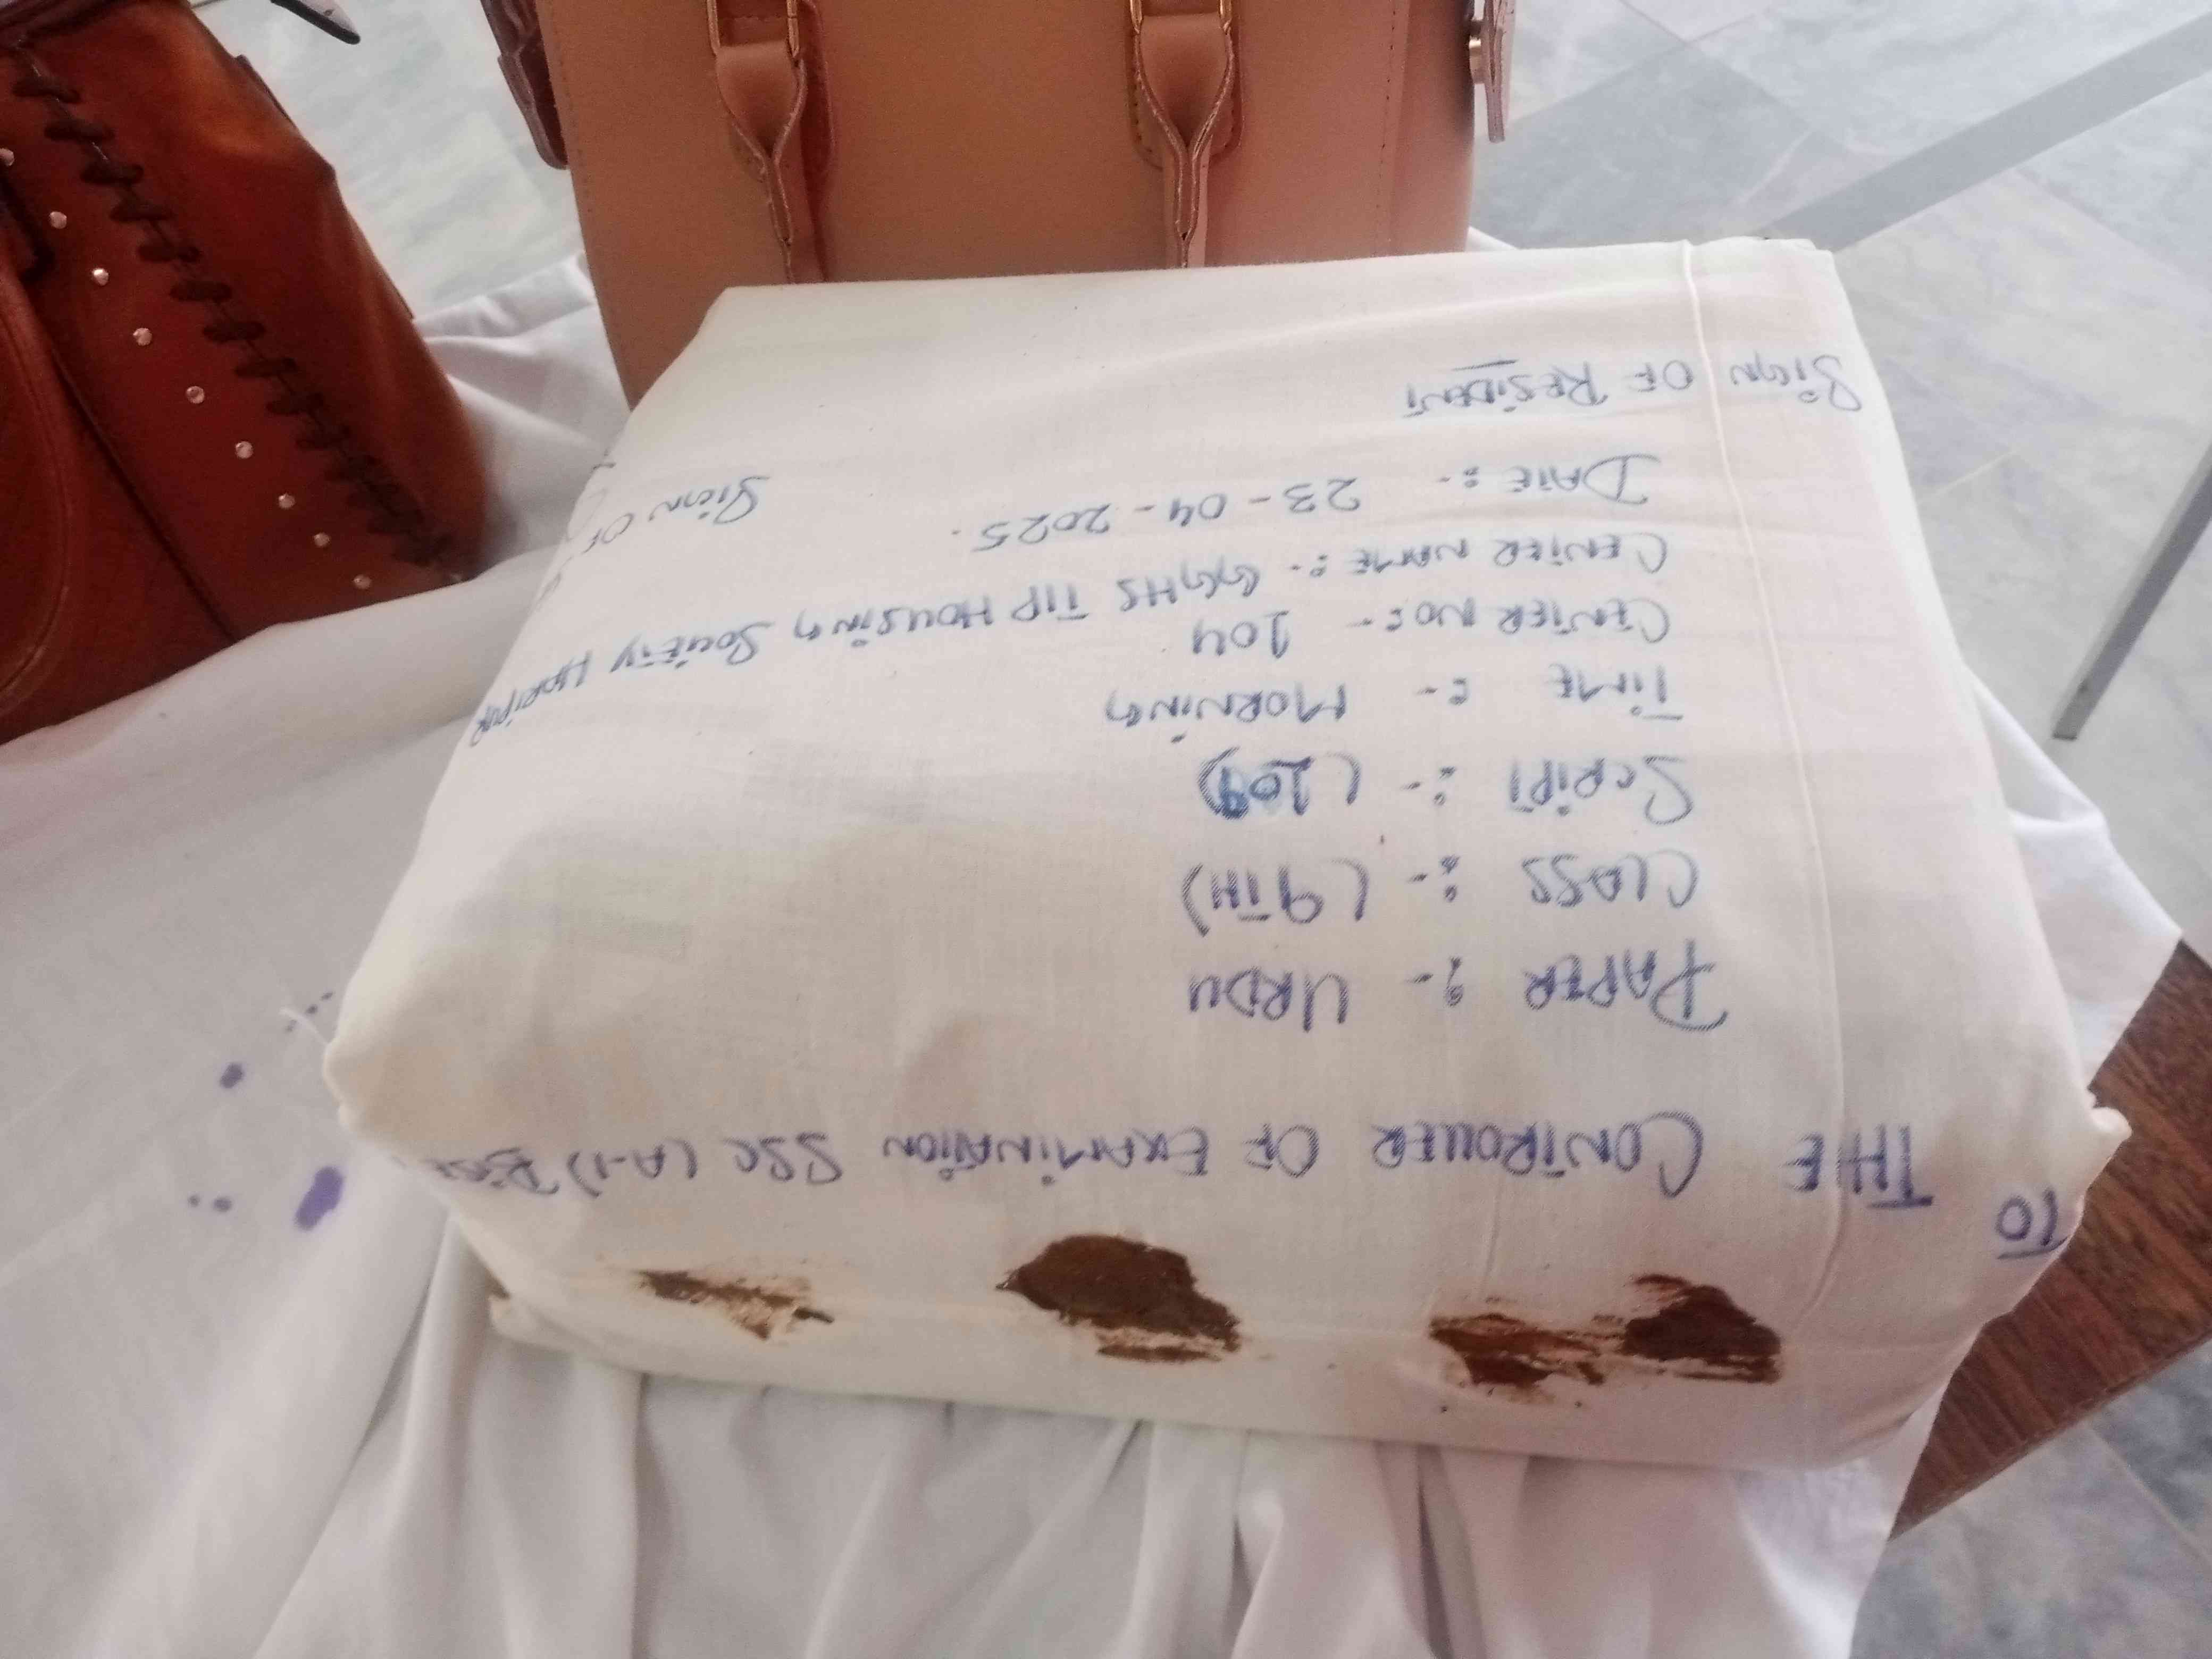 TO
THE CONTROLLER OF EXAMINATION SSC (A-1) BISE
PAPER :- URDU
CLASS :- (9TH)
SCRIPT :- (109)
TIME :- MORNING
CENTER NO:- 104
CENTER NAME :- GGHS TIP HOUSING SOCIETY HARIPUR
DATE :- 23-04-2025.
SIGN OF RESIDENT SIGN OF